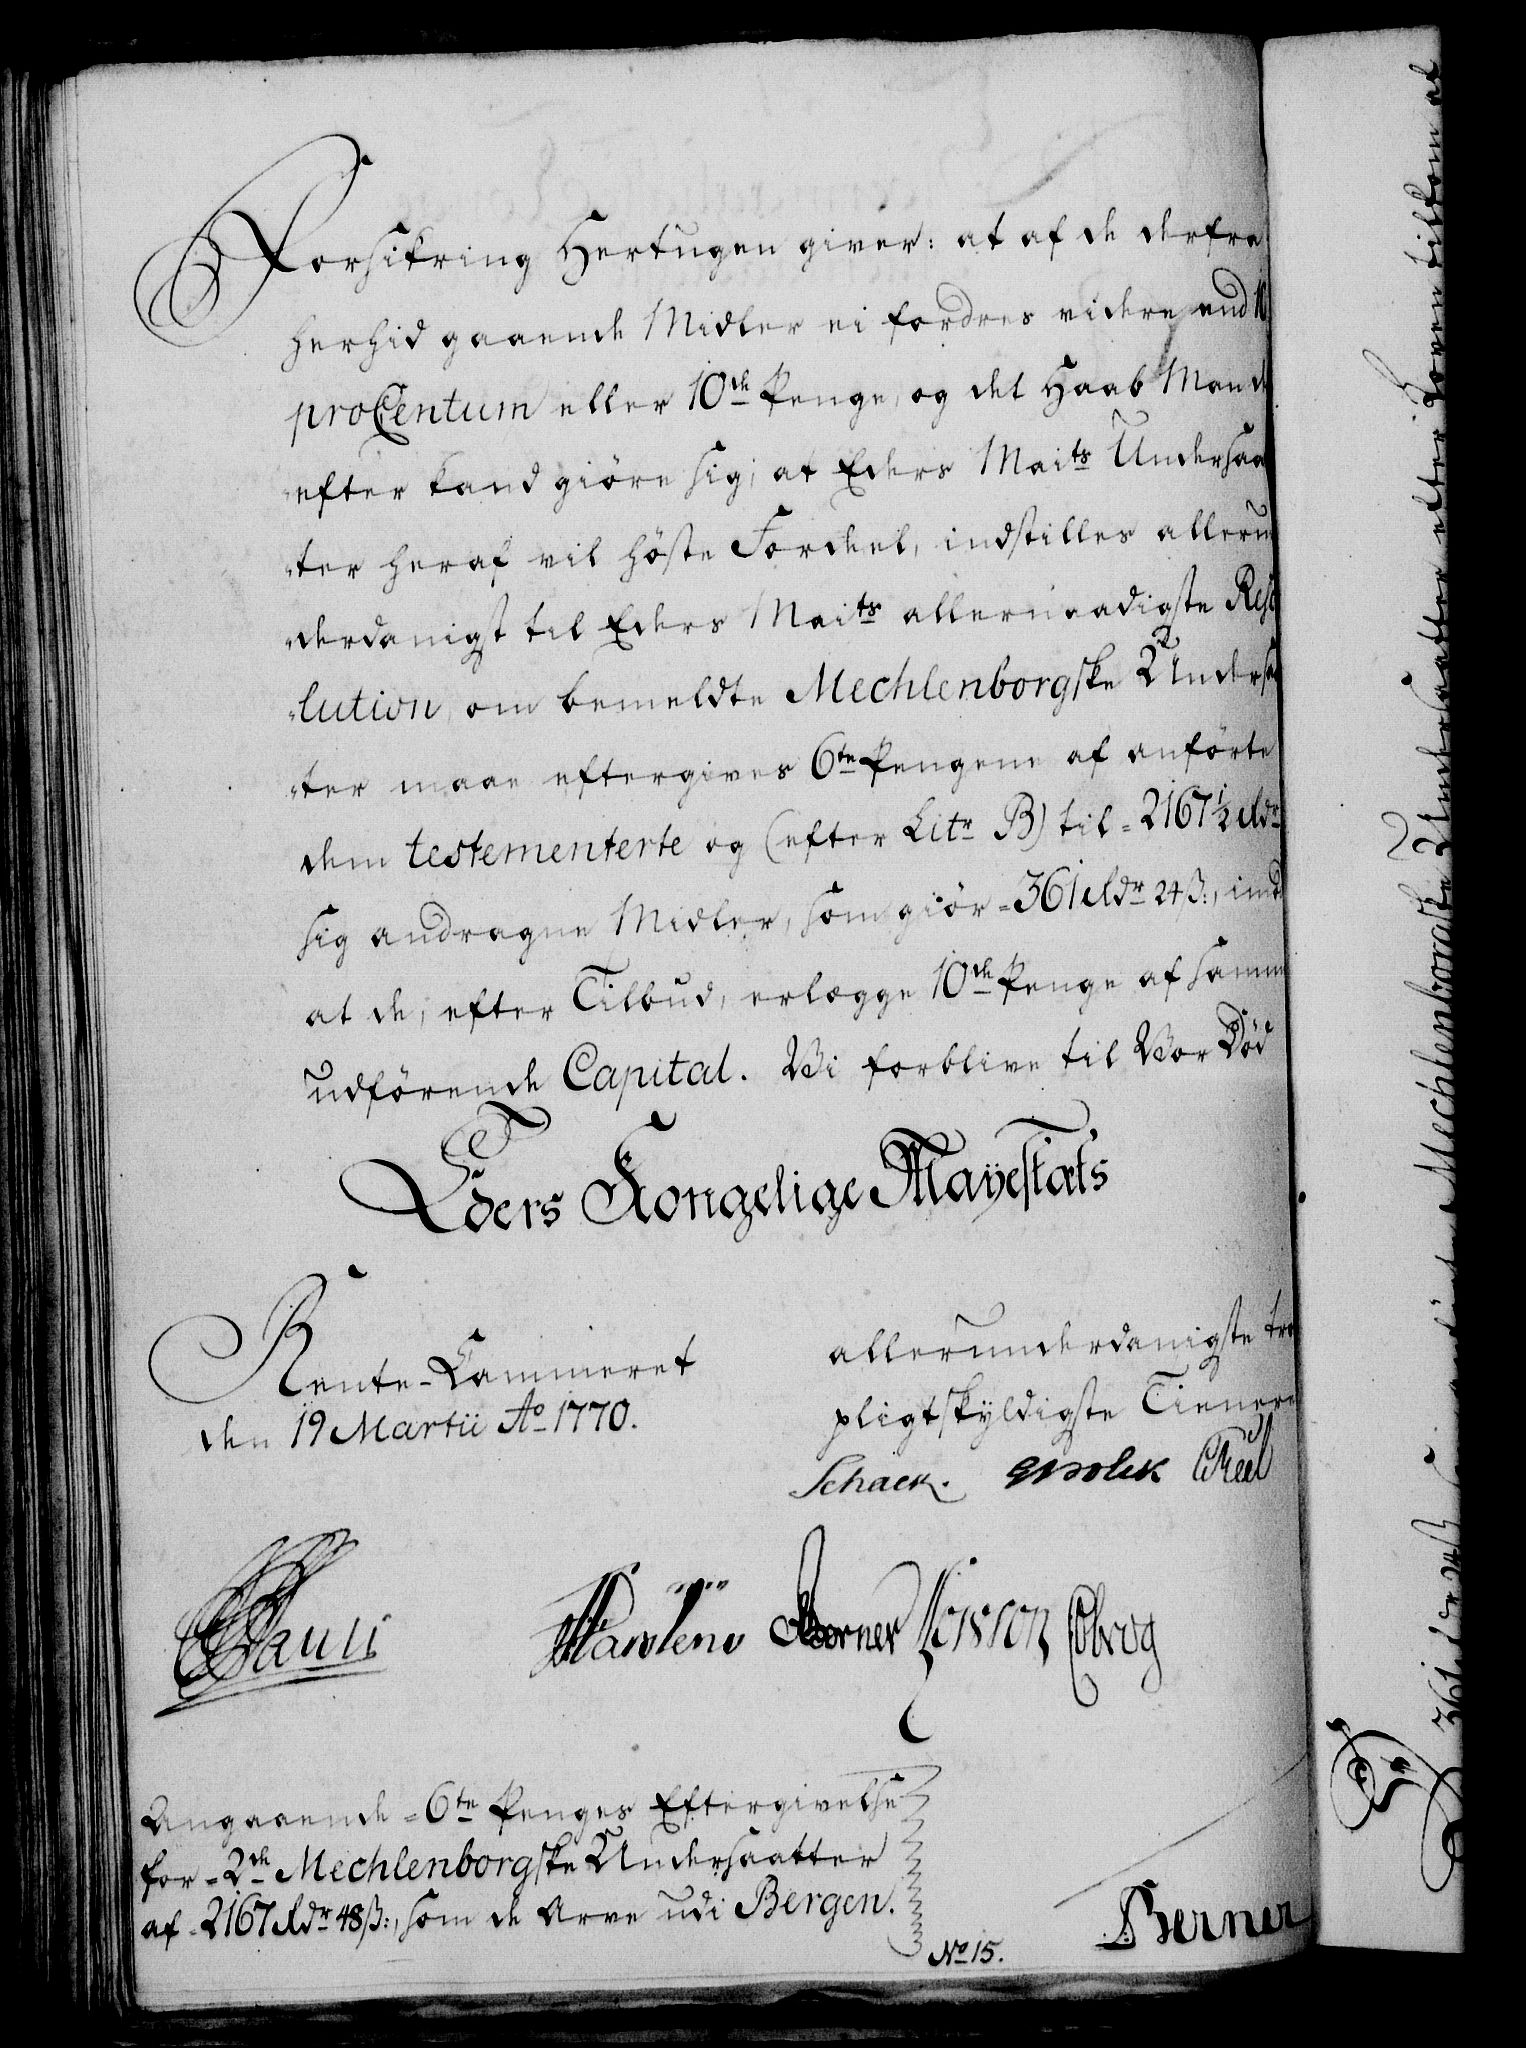 Forsikring Hertugen giver: at af de derfra
herhid gaaende Midler ei fordres videre end 10
proCentum eller 10de Penge, og det Haab Man de
efter kand giöre sig, at Eders Maits Undersaa
ter heraf vil höste Fordeel, indstilles allerun
derdanigst til Eders Maits allernaadigste Reso
lution, om bemeldte Mechlenborgske 2de Undersaa
ter maae eftergives 6te Pengene af anförte
dem testementerte og (efter Litr B) til 2167½ Rdr
sig andragne Midler, som giör 361 Rdr 24 ß:, imod
at de, efter Tilbud, erlægge 10de Penge af samme
udförende Capital. Vi forblive til Vor Död
Eders Kongelige Mayestæts
Rente-Cammeret
den 19 Martii Ao 1770.
allerunderdanigste tro
pligtskyldigste Tienere
Schack. Reel
Pauli
Berner Cobrog
Angaaende 6te Penges Eftergivelse
for 2de Mechlenborgske Undersaatter
af 2167 Rdr 48 ß:, som de Arve udi Bergen.
No 15.
Berner